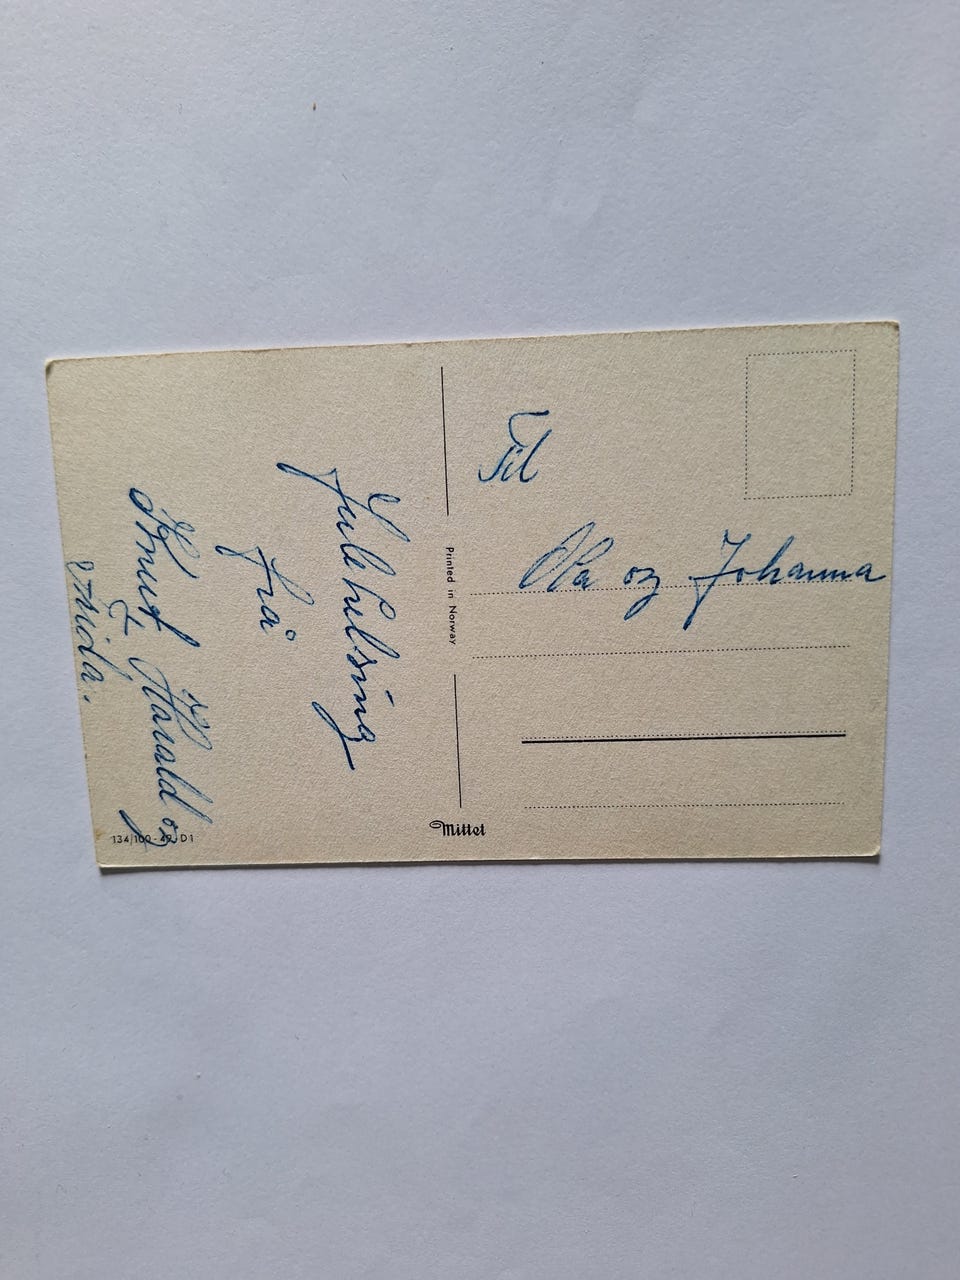 Julehelsing
frå
Knut, Harald og
Frida.
Printed in Norway
Mittet
134/100-49-D1
Til
Ola og Johanna